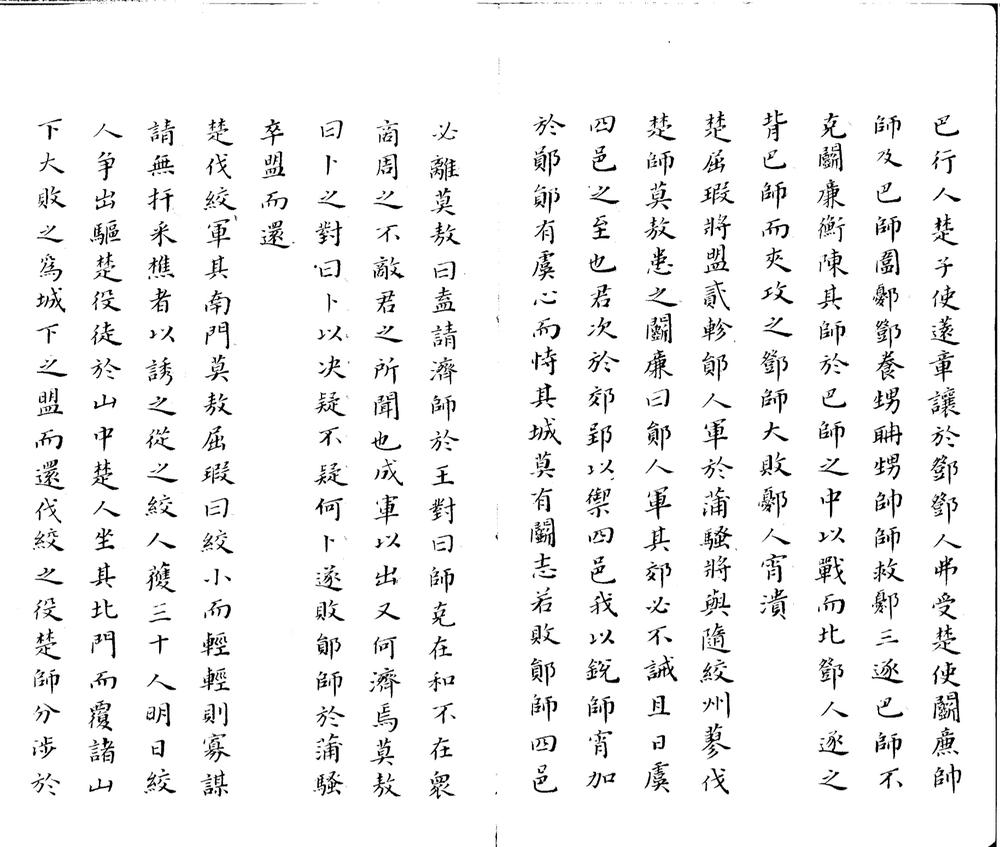 巴行人楚子使薳章讓於鄧鄧人弗受楚使鬭廉帥
師及巴師圍鄾鄧養甥聃甥帥師救鄾三逐巴師不
克鬭廉衡陳其師於巴師之中以戰而北鄧人逐之
背巴師而夾攻之鄧師大敗鄾人宵潰
楚屈瑕將盟貳軫鄖人軍於蒲騷將與隨絞州蓼伐
楚師莫敖患之鬭廉曰鄖人軍其郊必不誡且日虞
四邑之至也君次於郊郢以禦四邑我以銳師宵加
於鄖鄖有虞心而恃其城莫有鬭志若敗鄖師四邑
必離莫敖曰盍請濟師於王對曰師克在和不在衆
商周之不敵君之所聞也成軍以出又何濟焉莫敖
曰卜之對曰卜以决疑不疑何卜遂敗鄖師於蒲騷
卒盟而還
楚伐絞軍其南門莫敖屈瑕曰絞小而輕輕則寡謀
請無扞采樵者以誘之從之絞人獲三十人明日絞
人爭出驅楚役徒於山中楚人坐其北門而覆諸山
下大敗之爲城下之盟而還伐絞之役楚師分涉於